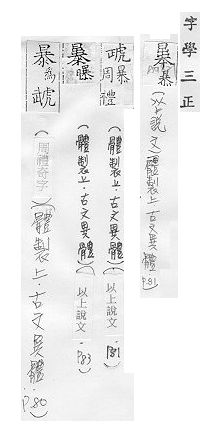 字學三正
暴暴
(以上說文)(體製上·古文異體 P.81)
虣暴
周禮
(體製上·古文異體)(以上說文 P.81)
暴曓
(體製上·古文異體)(以上說文 P.83)
暴為虣
(周禮奇字)(體製上·古文異體 P.80)